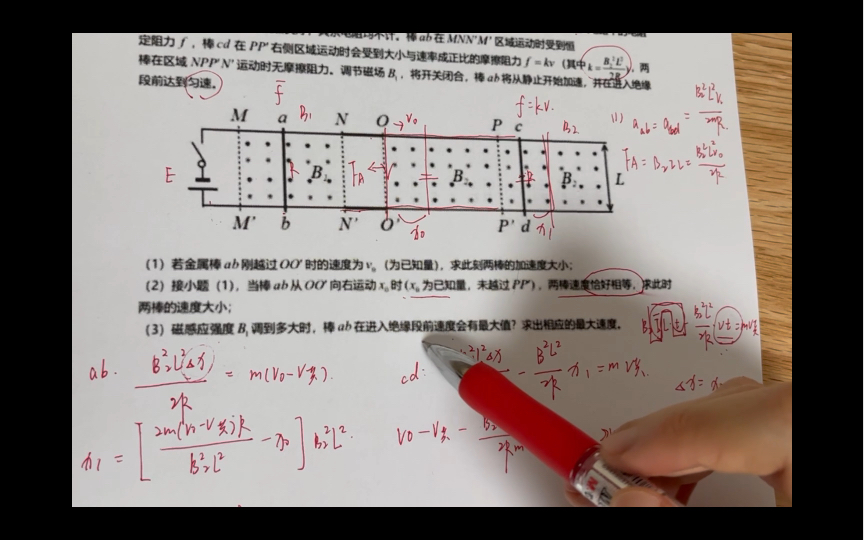 其余电阻均不计。棒ab在MNN'M'区域运动时受到恒
定阻力 f ，棒 cd 在 PP' 右侧区域运动时会受到大小与速率成正比的摩擦阻力 f = kv（其中 k = B₂²L²/2R），两
棒在区域 NPP'N' 运动时无摩擦阻力。调节磁场 B₁，将开关闭合，棒 ab 将从静止开始加速，并在进入绝缘
段前达到匀速。
f̄
f=kv.
M a B₁ N O →v₀ P c B₂
E R B₁ F_A B₂ R B₂ L
M' b N' O' x₀ P' d x₁
(1) a_ab = a_cd = B₂²L²v₀/2mR
F_A = B₂IL = B₂²L²v₀/2R
（1）若金属棒 ab 刚越过 OO' 时的速度为 v₀（为已知量），求此刻两棒的加速度大小；
（2）接小题（1），当棒 ab 从 OO' 向右运动 x₀ 时（x₀ 为已知量，未越过 PP'），两棒速度恰好相等，求此时
两棒的速度大小；
（3）磁感应强度 B₁ 调到多大时，棒 ab 在进入绝缘段前速度会有最大值？求出相应的最大速度。
ab. B₂²L²Δx/2R = m(v₀-v共).
cd: - B²L²/2R x₁ = mv共.
x₁ = [2m(v₀-v共)R/B₂²L² - x₀] B₂²L².
v₀-v共-